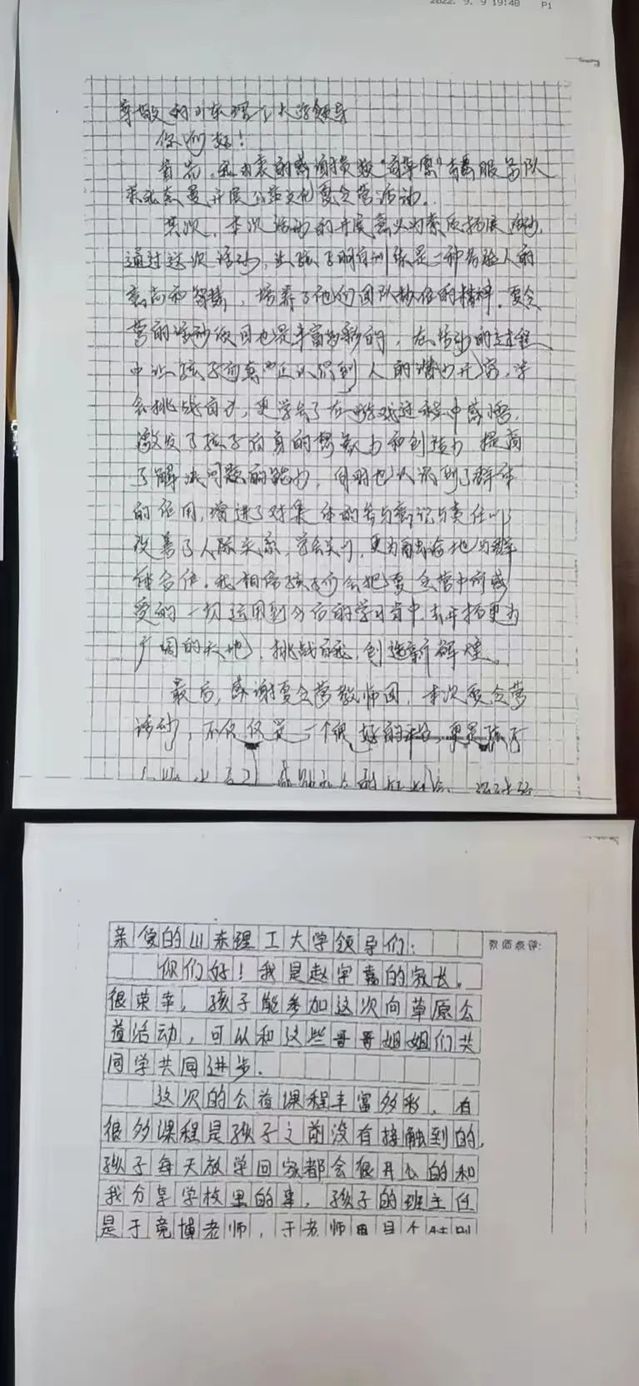 2022. 9. 9 19:48 P1
尊敬的山东理工大学领导
你们好!
首先,我由衷的感谢贵校"向草原"志愿服务队
来我太旗开展公益文化夏令营活动。
其次,本次活动的开展意义为素质拓展活动,
通过这次活动,让孩子明白训练是一种考验人的
意志和智慧,培养了他们团队协作的精神。夏令
营的活动项目也是丰富多彩的,在活动的过程
中让孩子们真正认识到人的潜力无穷,学
会挑战自己,更学会了在游戏过程中感悟,
激发了孩子自身的想象力和创造力 提高
了解决问题的能力,同时也认识到了群体
的作用,增进了对集体的参与意识与责任心
改善了人际关系,学会关心,更为融洽地与群
体合作。我相信孩子们会把夏令营中所感
受的一切运用到今后的学习当中,去开拓更为
广阔的天地,挑战自我,创造新辉煌。
最后,感谢夏令营教师团,本次夏令营
活动,不仅仅是一个很好的平台,更是孩子
亲爱的山东理工大学领导们:
教师点评:
你们好!我是赵宇嘉的家长。
很荣幸,孩子能参加这次向草原公
益活动,可以和这些哥哥姐姐们共
同学共同进步.
这次的公益课程丰富多彩,有
很多课程是孩子之前没有接触到的,
孩子每天放学回家都会很开心的和
我分享学校里的事,孩子的班主任
是于竞博老师,于老师